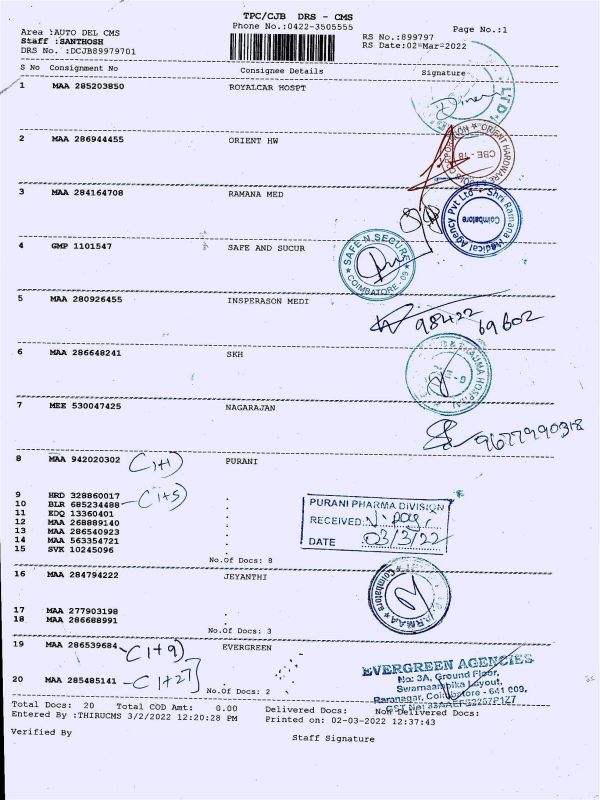 TPC/CJB DRS - CMS
Phone No.:0422-3505555
Page No.:1
Area :AUTO DEL CMS
Staff :SANTHOSH
DRS No. :DCJB89979701
RS No.:899797
RS Date:02-Mar-2022
S No Consignment No Consignee Details Signature
1 MAA 285203850 ROYALCAR HOSPT
LTD
2 MAA 286944455 ORIENT HW
ORIENT HARDWARE
CBE - 18
3 MAA 284164708 RAMANA MED
Shri Ramana Medical Agency Pvt Ltd
Coimbatore
4 GMP 1101547 SAFE AND SUCUR
SAFE N SECURE
COIMBATORE - 09
5 MAA 280926455 INSPERASON MEDI
98422 69602
6 MAA 286648241 SKH
HOSPITAL
7 MEE 530047425 NAGARAJAN
9677990318
8 MAA 942020302 (1+1) PURANI
9 HRD 328860017 .
10 BLR 685234488 (1+5) .
11 EDQ 13360401 .
12 MAA 268889140 .
13 MAA 286540923 .
14 MAA 563354721 .
15 SVK 10245096 .
No.Of Docs: 8
PURANI PHARMA DIVISION
RECEIVED:
DATE 03/3/22
16 MAA 284794222 JEYANTHI
Coimbatore
17 MAA 277903198 .
18 MAA 286688991 .
No.Of Docs: 3
19 MAA 286539684 (1+9) EVERGREEN
20 MAA 285485141 (1+27) .
No.Of Docs: 2
EVERGREEN AGENCIES
No: 3A, Ground Floor,
Swarnaambika Layout,
Ramanagar, Coimbatore - 641 009.
Total Docs: 20 Total COD Amt: 0.00 Delivered Docs: Non Delivered Docs:
Entered By :THIRUCMS 3/2/2022 12:20:28 PM Printed on: 02-03-2022 12:37:43
Verified By Staff Signature